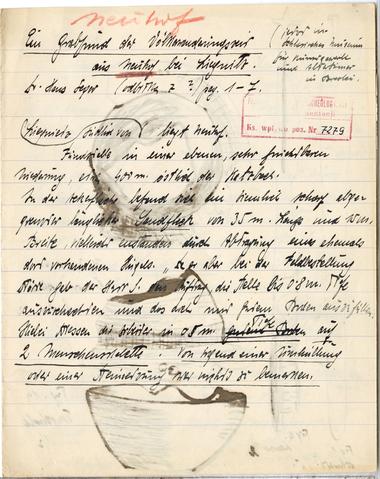 Neuhof
Ein Grabfund der Völkerwanderungszeit
aus Neuhof bei Liegnitz.
(jetzt im
schlesisches Museum
für Kunstgewerbe
und Altertümer
in Breslau)
Dr. Hans Seger pag. 1-7.
Ks. wpł. poz. Nr 7279
Liegnitz südlich von liegt Neuhof.
Fundstelle in einer ebenen, sehr fruchtbaren
östlich der Katzbach.
In der Ackerfläche befand sich ein ziemlich scharf abge-
grenzter länglicher Sandfleck von 35 m. Länge und 10 m.
Breite, vielleicht entstanden durch Abtragung eines ehemals
dort vorhandenen Hügels. Da er aber bei der Feldbestellung
gab der Herr S. den Auftrag die Stelle bis 0.8 m. Tiefe
auszuschachten und das mit gutem Boden auszufüllen.
Dabei stiessen die Arbeiter in 0.8 m. Tiefe auf
2 Menschenskelette. Von irgend einer Umhüllung
oder einer Steinsetzung war nichts zu bemerken.